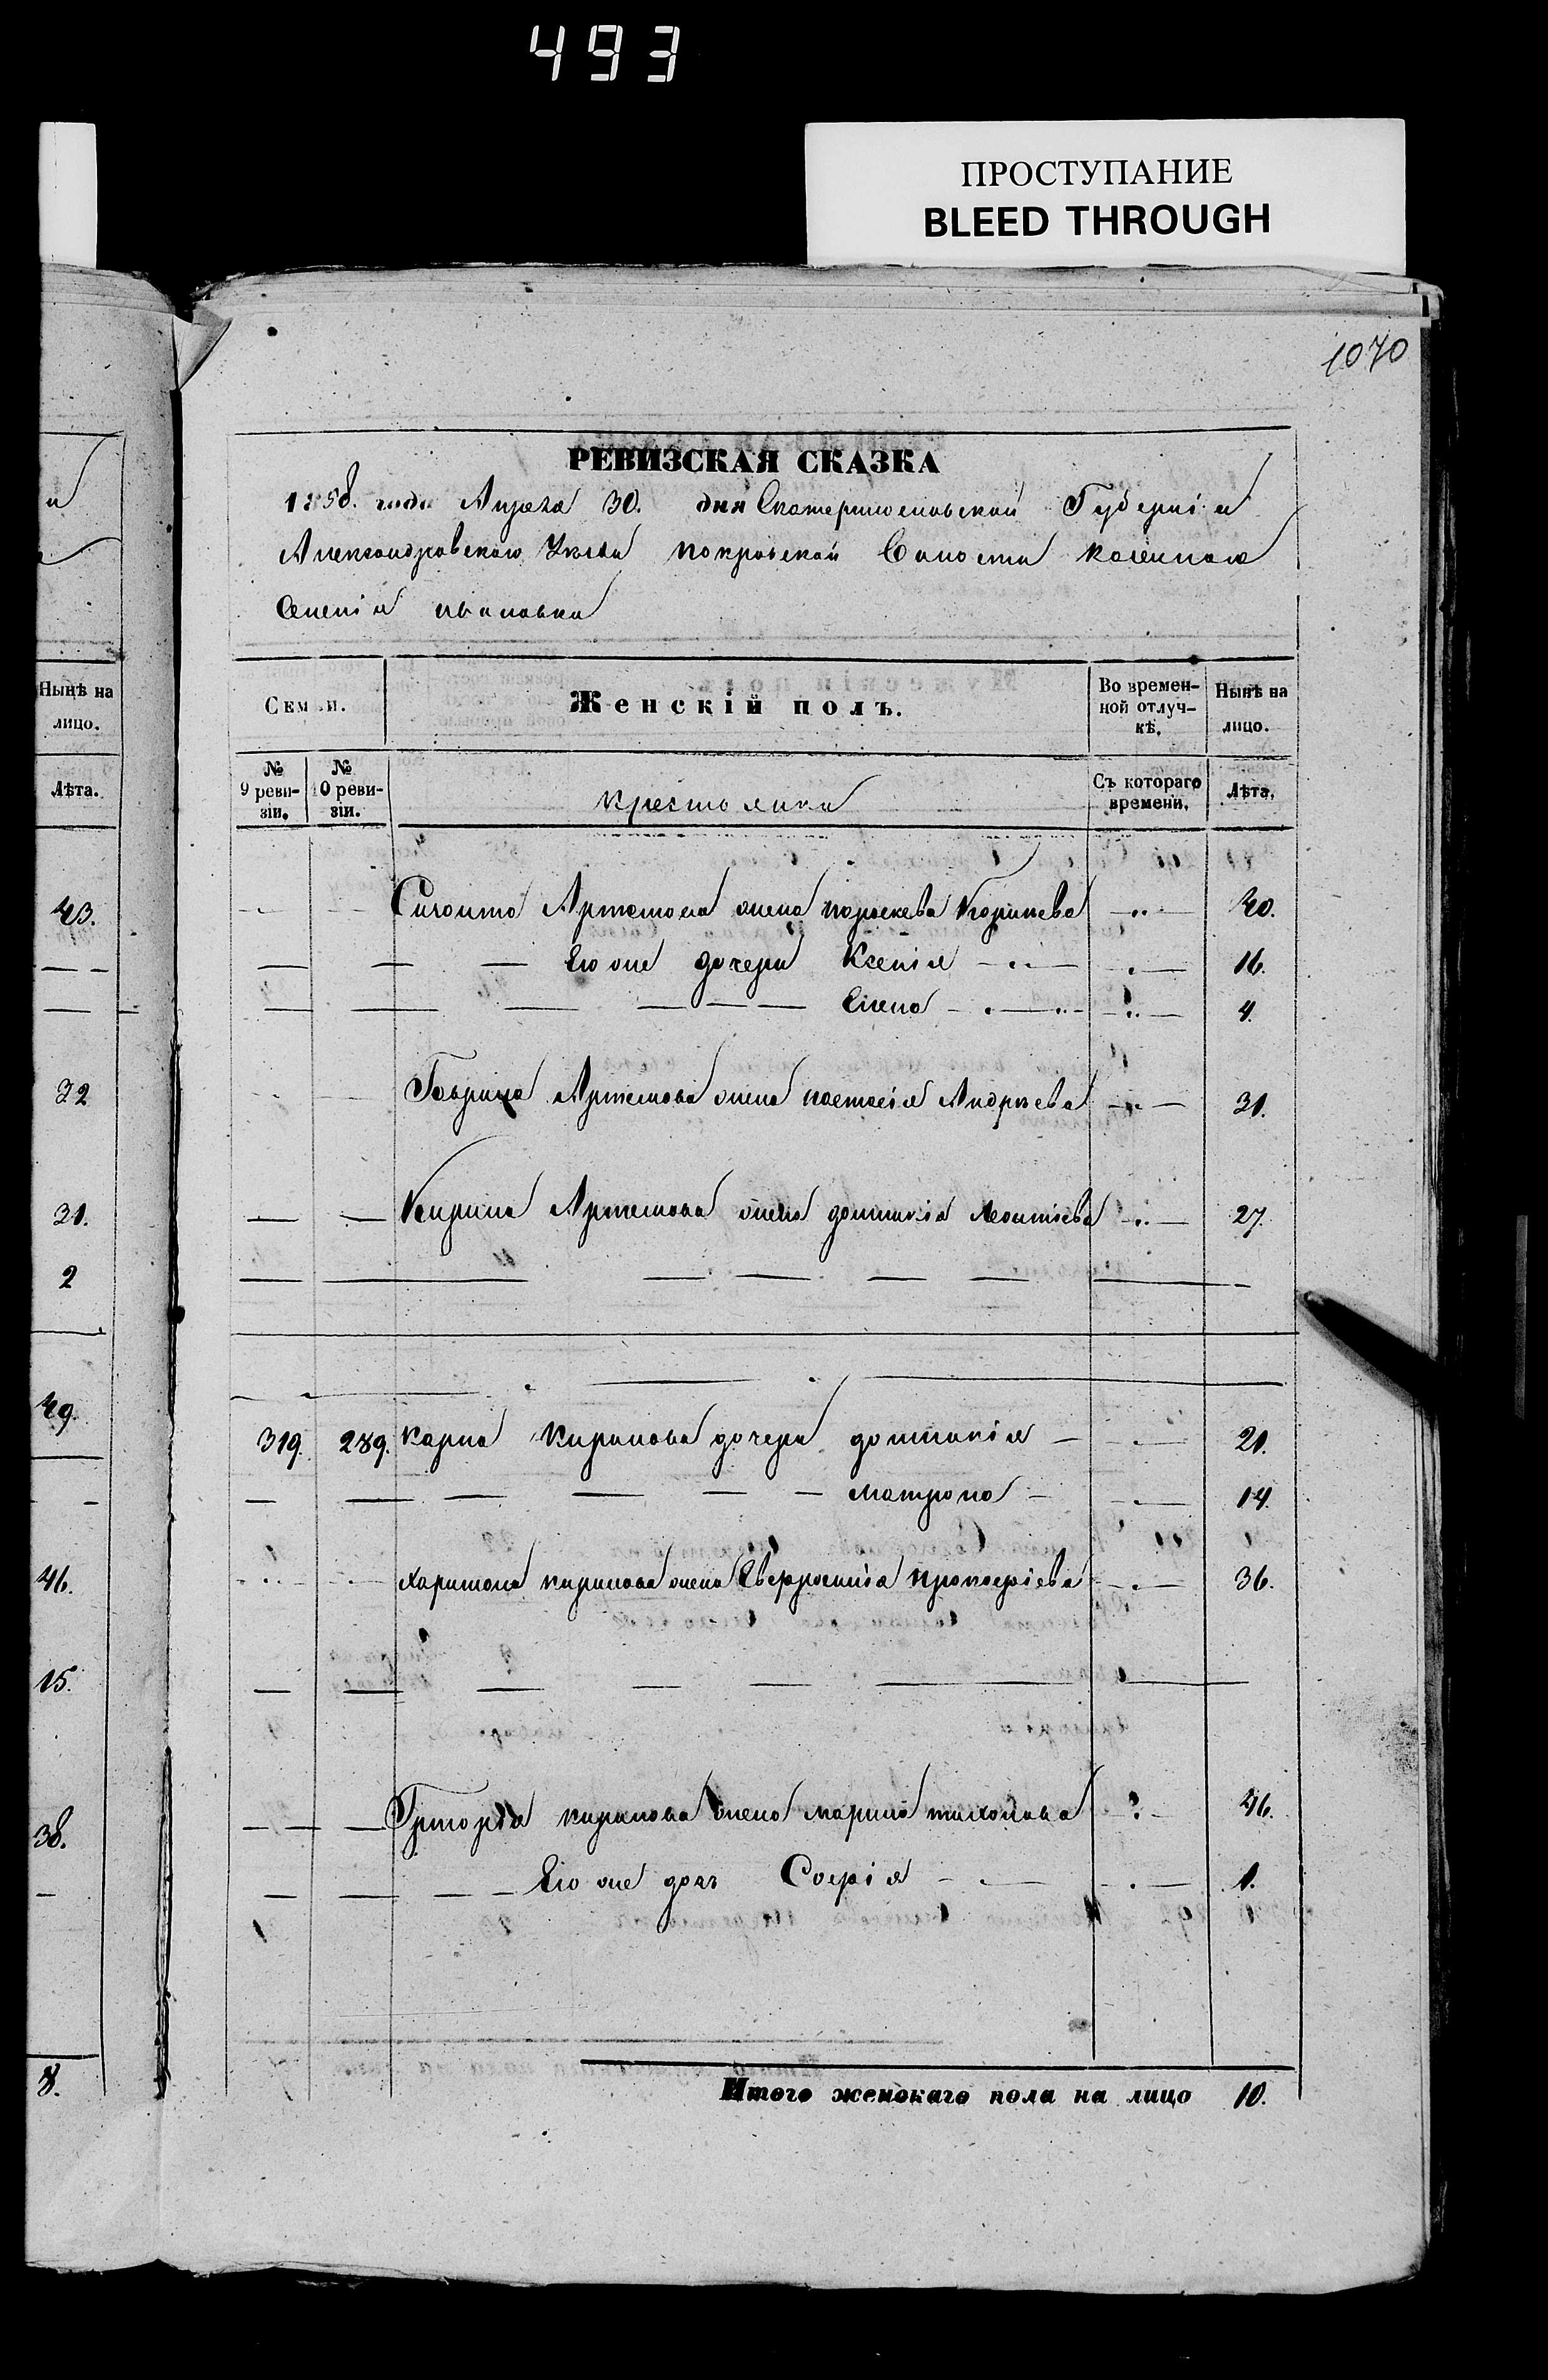 493
ПРОСТУПАНИЕ
BLEED THROUGH
1070
РЕВИЗСКАЯ СКАЗКА
1858. года Апреля 30. дня Екатеринославской Губерніи
Александровскаго Уезда покровской Волости казеннаго
Селенія ивановки
Нынѣ на лицо.
Лѣта.
43.
32
31.
2
49.
46.
15.
38.
8.
Семьи. Женскій полъ. Во временной отлучкѣ. Нынѣ на лицо.
№ 9 ревизіи. № 10 ревизіи. крестьянки Съ котораго времени. Лѣта.
Артемова жена параскева 40.
Его же дочери Ксенія 16.
Елена 4.
Гаврила Артемова жена настасія Андреева 31.
Артемова жена домникія Леонтіева 27.
319. 289. карпа Кирилова дочери домникія 21.
матрона 14.
харитона кирилова жена Евфросинія прокофіева 36.
Григорія кирилова жена марина тихонова 46.
Его же дочь Софія 1.
Итого женскаго пола на лицо 10.